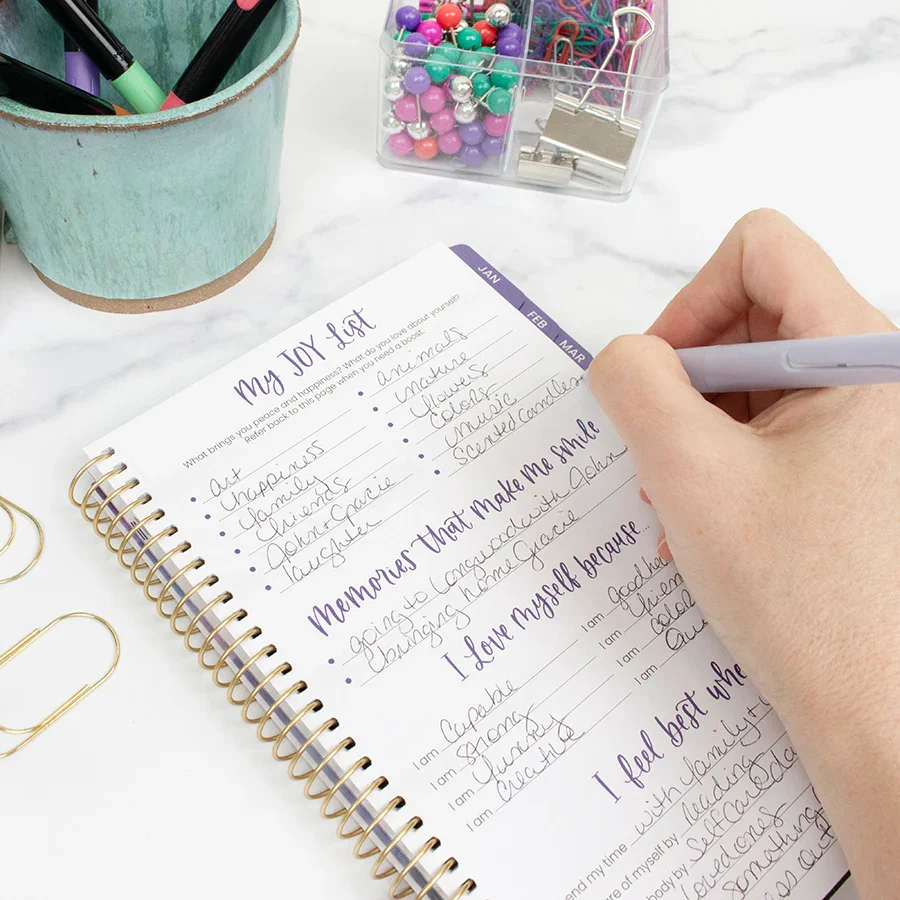 JAN
FEB
MAR
My JOY List
What brings you peace and happiness? What do you love about yourself?
Refer back to this page when you need a boost.
art
happiness
family
friends
John + Gracie
laughter
animals
nature
flowers
colors
music
scented candles
Memories that make me smile
going to Longwood with John
bringing home Gracie
I love myself because...
I am Capable
I am Strong
I am funny
I am Creative
I am
I am
I am
I am
I feel best whe
end my time with family +
re of myself by reading
body by Self Care
loved ones
something